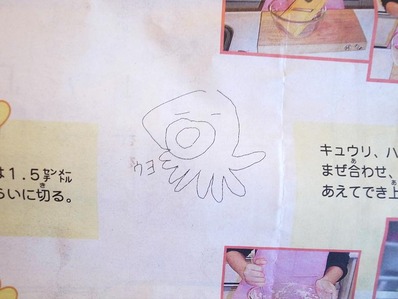 は1.5センチメートル
らいに切る。
ウヨ
キュウリ、ハ
まぜ合わせ、
あえてでき上